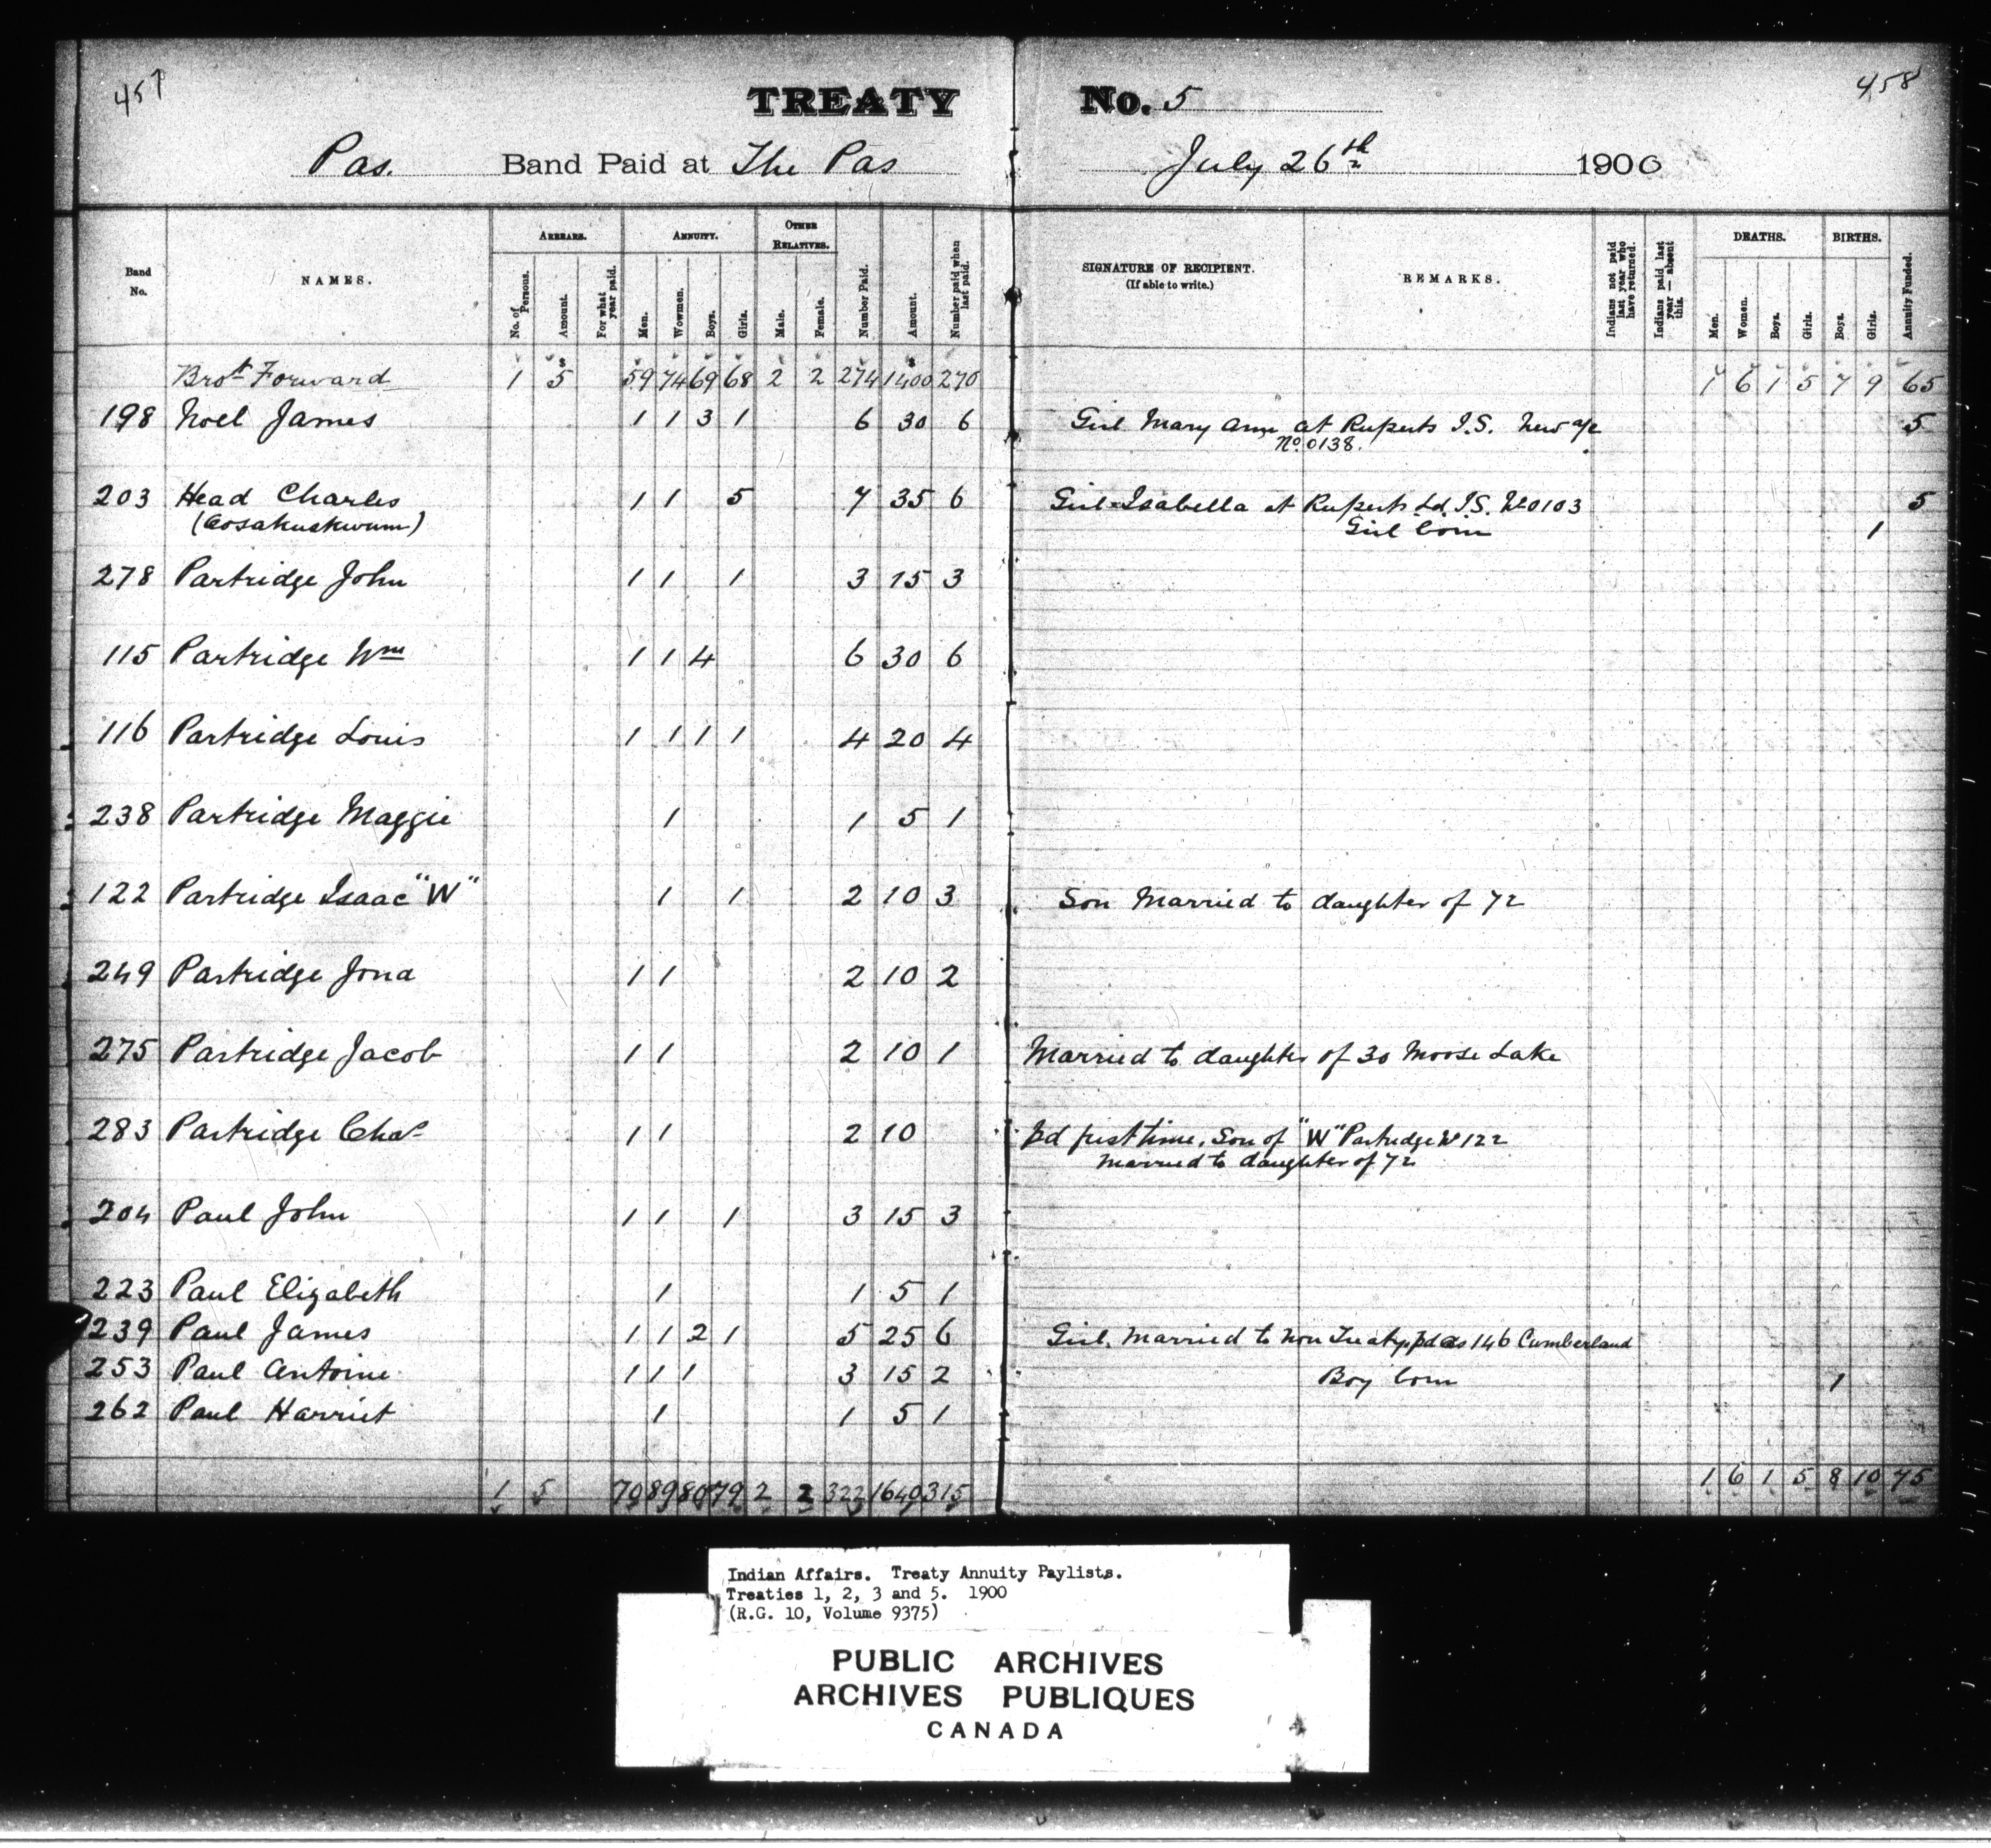 457
TREATY No. 5
458
Pas. Band Paid at The Pas July 26th 1900
Band No.
NAMES.
ARREARS.
No. of Persons.
Amount.
For what year paid.
ANNUITY.
Men.
Wowmen.
Boys.
Girls.
OTHER RELATIVES.
Male.
Female.
Number Paid.
Amount.
Number paid when last paid.
SIGNATURE OF RECIPIENT.
(If able to write.)
REMARKS.
Indians not paid last year who have returned.
Indians paid last year — absent this.
DEATHS.
Men.
Women.
Boys.
Girls.
BIRTHS.
Boys.
Girls.
Annuity Funded.
Brot Forward 1 $5 59 74 69 68 2 2 274 $1400 270 1 6 1 5 7 9 65
198 Noel James 1 1 3 1 6 30 6 Girl Mary Ann at Ruperts I.S. New a/c 5
No. 0138.
203 Head Charles 1 1 5 7 35 6 Girl Isabella at Ruperts Ld. I.S. No 0103 5
(Cosakuskwum) Girl born 1
278 Partridge John 1 1 1 3 15 3
115 Partridge Wm 1 1 4 6 30 6
116 Partridge Louis 1 1 1 1 4 20 4
238 Partridge Maggie 1 1 5 1
122 Partridge Isaac "W" 1 1 2 10 3 Son Married to daughter of 72
249 Partridge Jona 1 1 2 10 2
275 Partridge Jacob 1 1 2 10 1 Married to daughter of 30 Moose Lake
283 Partridge Chas 1 1 2 10 pd first time, Son of "W" Partridge No 122
Married to daughter of 72
204 Paul John 1 1 1 3 15 3
223 Paul Elizabeth 1 1 5 1
239 Paul James 1 1 2 1 5 25 6 Girl, Married to Non Treaty, pd as 146 Cumberland
253 Paul Antoine 1 1 1 3 15 2 Boy born 1
262 Paul Harriet 1 1 5 1
1 5 70 89 80 79 2 2 322 1640 315 1 6 1 5 8 10 75
Indian Affairs. Treaty Annuity Paylists.
Treaties 1, 2, 3 and 5. 1900
(R.G. 10, Volume 9375)
PUBLIC ARCHIVES
ARCHIVES PUBLIQUES
CANADA